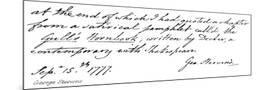 at the end of which I had quoted a chapter
from a satirical pamphlet call'd the
Gull's Hornbook, written by Decker, a
contemporary with Shakespeare.
Geo: Steevens
Sepr. 15.th 1777.
George Steevens